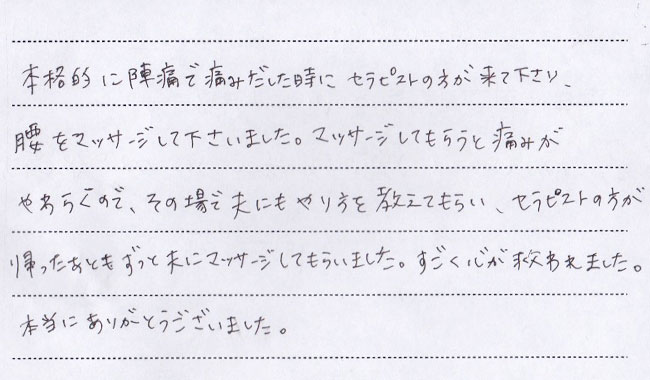 本格的に陣痛で痛みだした時に セラピストの方が来て下さり、
腰をマッサージして下さいました。マッサージしてもらうと痛みが
やわらぐので、その場で夫にもやり方を教えてもらい、セラピストの方が
帰ったあともずっと夫にマッサージしてもらいました。すごく心が救われました。
本当にありがとうございました。